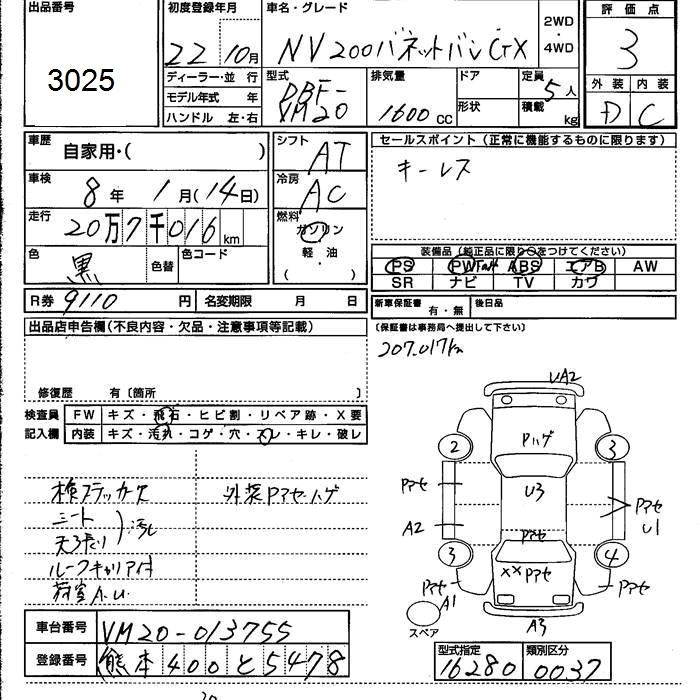 出品番号
3025
初度登録年月
22 10月
車名・グレード
NV200バネットバンGX
2WD
・
4WD
評価点
3
外装 内装
D C
ディーラー・並 行
モデル年式 年
ハンドル 左・右
型式
DBF-
VM20
排気量
1600 CC
ドア
形状
定員
5人
積載
kg
車歴
自家用・( )
シフト
AT
セールスポイント(正常に機能するものに限ります)
キーレス
車検
8年 1月(14日)
冷房
AC
走行
20万7千016 km
燃料
ガソリン
・
軽・油
( )
色
黒
色替
色コード
装備品(純正品に限り○をつけてください)
PS PW ABS エアB AW
SR ナビ TV カワ
R券 9110 円
名変期限 月 日
新車保証書
有・無
後日品
(保証書は事務局へ提出して下さい)
207.017km
出品店申告欄(不良内容・欠品・注意事項等記載)
修復歴 有〔箇所 〕
検査員
記入欄
FW キズ・飛石・ヒビ割・リペア跡・X要
内装 キズ・汚れ・コゲ・穴・スレ・キレ・破レ
検ステッカー欠
シート
天張り
汚れ
ルーフキャリア付
荷室A.U.
外装Pアセ・ハゲ
UA2
Pハゲ
2
3
Pアセ
U3
Pアセ
U1
A2
Pアセ
3
4
XXPアセ
Pアセ
A1
Pアセ
A3
スペア
車台番号 VM20-013755
登録番号 熊本400と5478
型式指定
16280
類別区分
0037